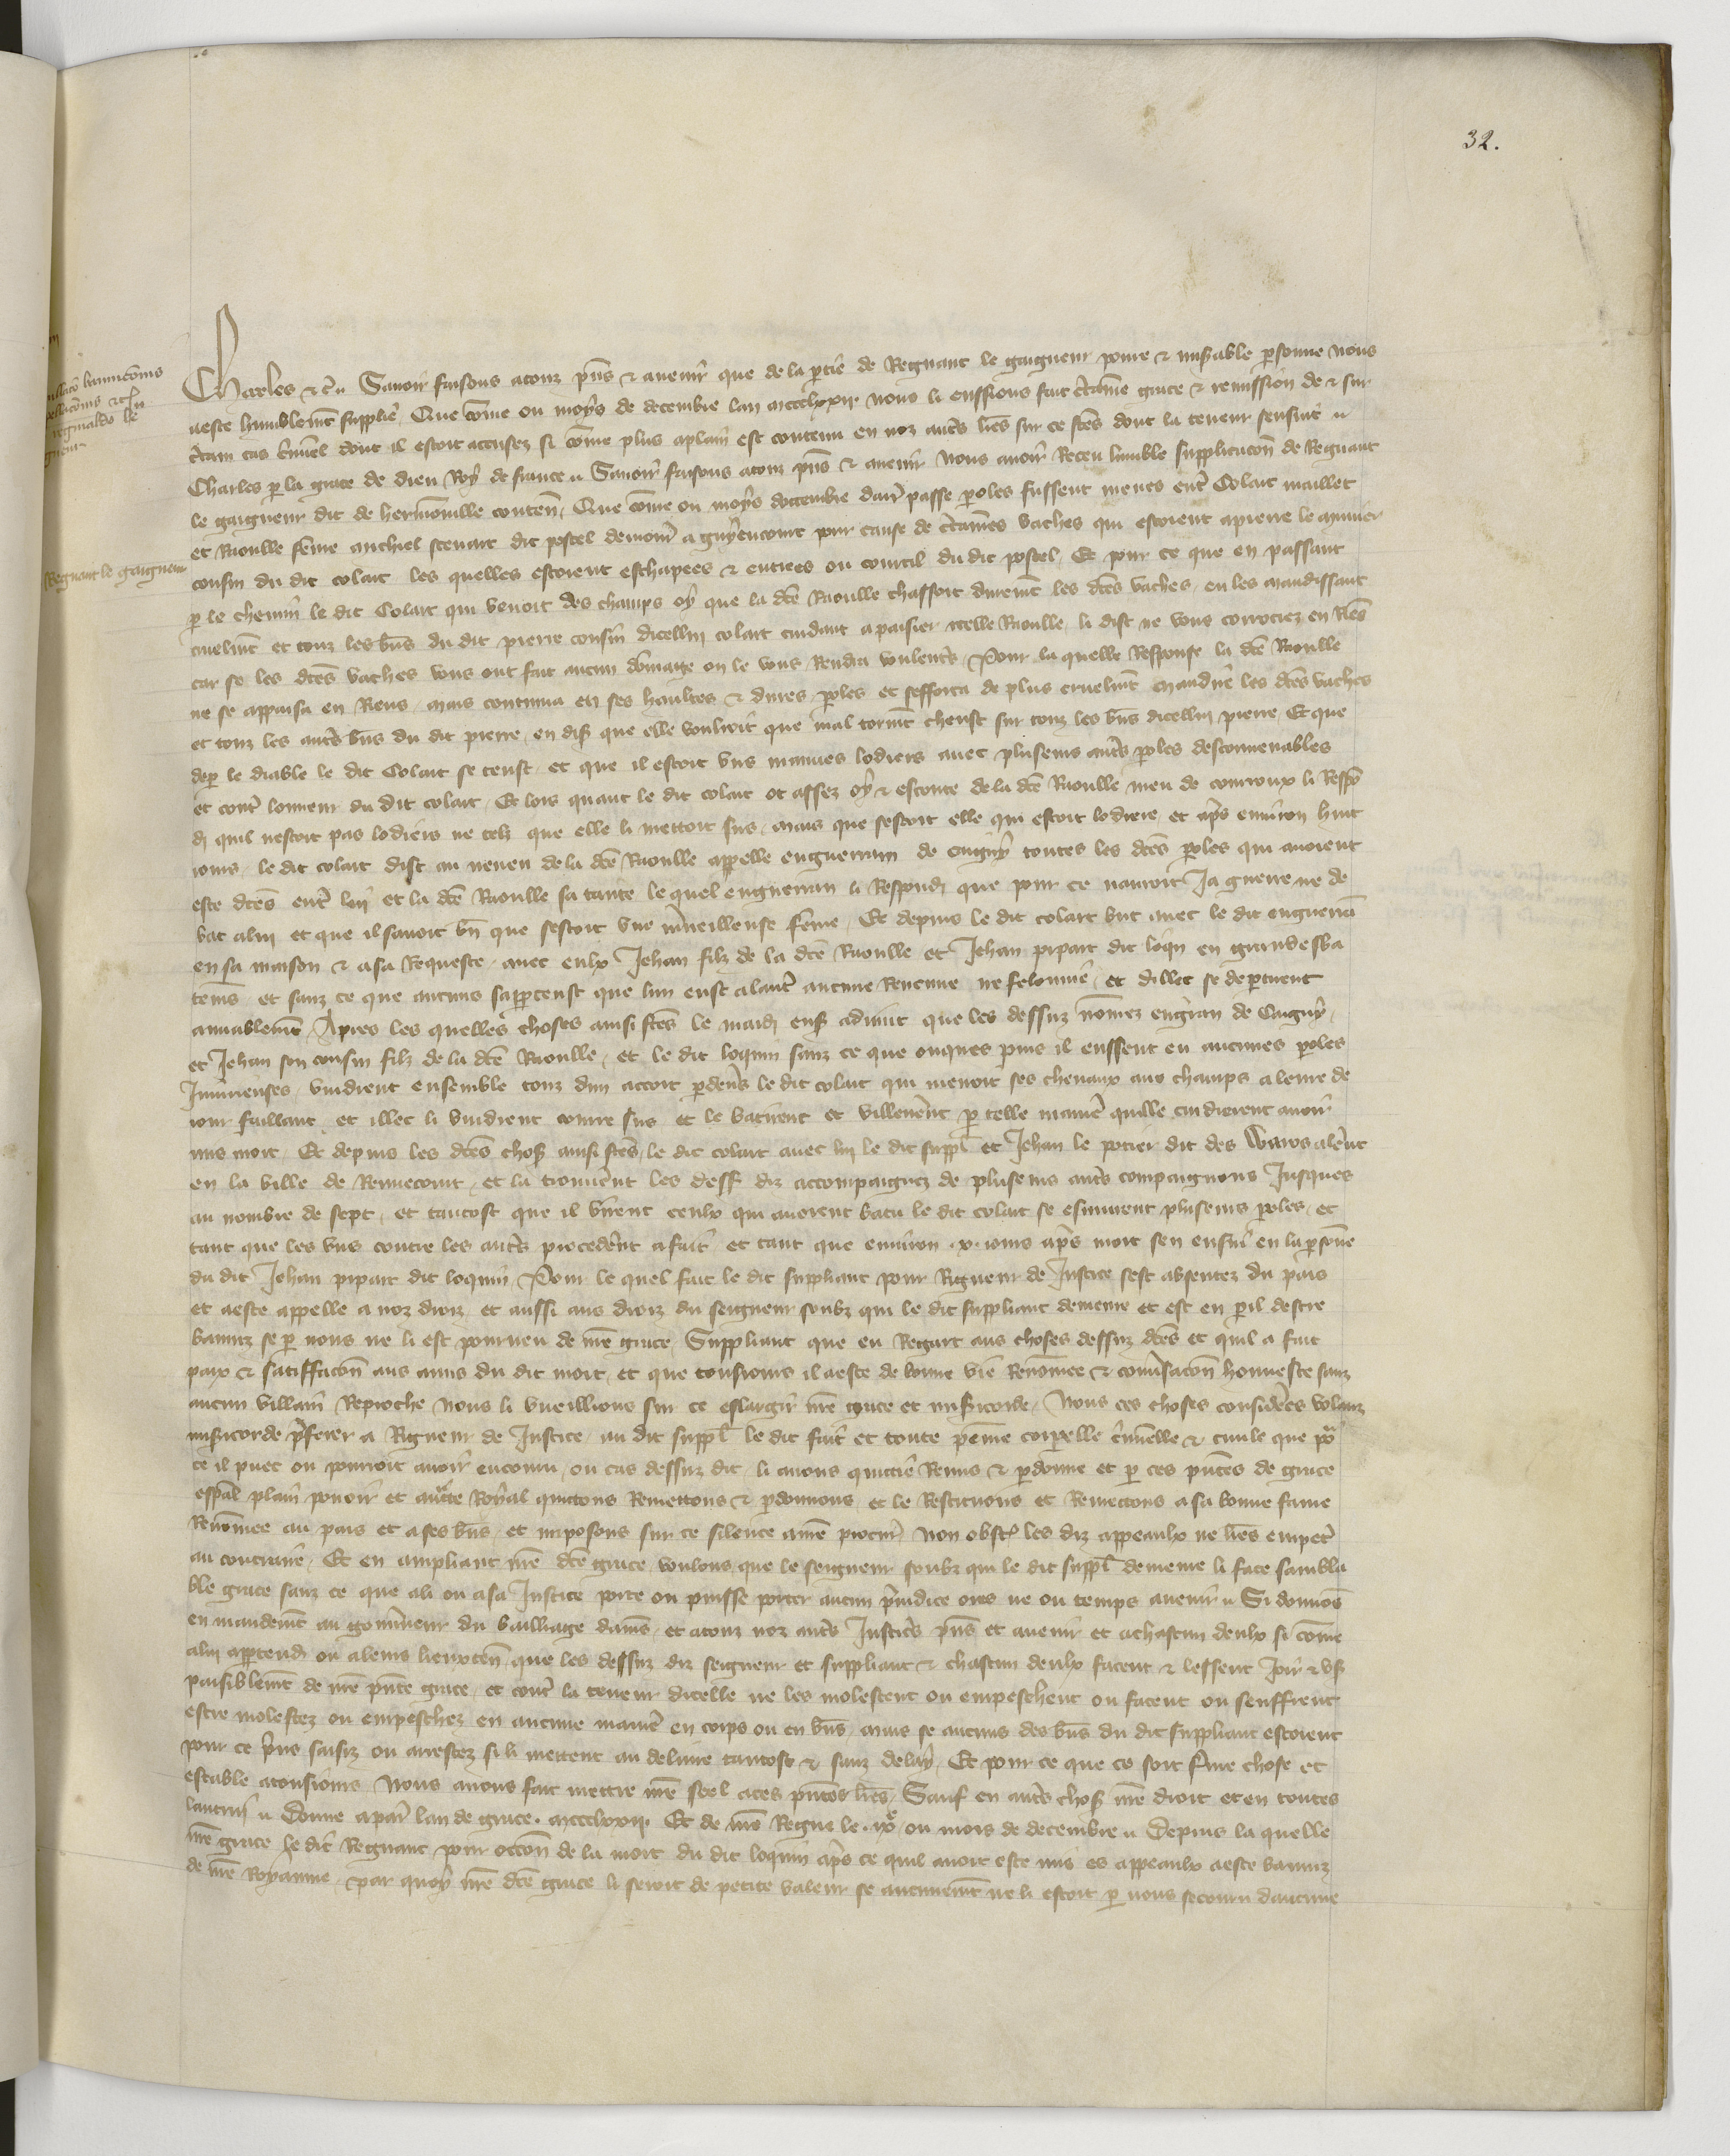 32.
Charles etc̃ Savoir faisons a touz p̃ns & avenir que de la partie de Regnaut le gaigneur povre & mis̃able personne nous
a esté humblem̃t supplié Que com̃e ou moys de decembre lan mccclxxij nous li eussions fait c̃taine grace & remission de & sur
c̃tain cas c̃minel dont il estoit accusez si com̃e plus a plain est contenu en noz aut̃s l̃res sur ce f̃tes dont la teneur sensuit
Charles par la grace de dieu Roy de france Savoir faisons a touz p̃ns & avenir Nous avoir Receu lumble supplicacõn de Regnaut
le gaigneur dit de hermonville conten̄ Que com̃e ou moys doctembre darr̃ passe p̃oles fussent meues ent̃ Colart maillet
Regnaut le gaigneur
et Raoulle fem̃e michiel stenart dit postel demour̃ a guyencourt pour cause de c̃taines vaches qui estoient a pierre le
cousin du dit colart les quelles estoient eschapees & entrees ou courtil du dit postel Et pour ce que en passant
p̲ le chemin le dit Colart qui venoit des champs oy que la d̃te Raoulle chassoit durem̃t les d̃tes vaches en les maudissant
cruelm̃t et touz les bñs du dit pierre cousin dicelluy colart cuidant apaisier icelle Raoulle li dist ne vous corrociez en Riẽs
car se les d̃tes vaches vous ont fait aucun dõmaige on le vous Rendra voulent̃s Pour la quelle Response la d̃te Raoulle
ne se appaisa en Riens mais continua en ses haultes & dures p̲oles et sefforca de plus cruelm̃t maudire les d̃tes vaches
et touz les aut̃s bñs du dit pierre en dis̃ que elle vouldroit que mal torm̃t cheust sur touz les bñs dicelluy pierre Et que
de p̲ le diable le dit Colart se teust et que il estoit uns mauves lodiers avec plusieurs aut̃s p̲oles desconvenables
et cont̃ lonneur du dit colart Et lors quant le dit colart ot assez oy & escoute de la d̃te Raoulle meu de courroux li Respõ
di quil nestoit pas lodiers ne telz que elle li mettoit sus mais que sestoit elle qui estoit lodiere et ap̃s environ huit
iours le dit colart dist au neveu de la d̃te Raoulle appelle enguerran de Caigny toutes les d̃tes p̲oles qui avoient
este d̃tes ent̃ luy et la d̃te Raoulle sa tante le quel enguerran li Respondi que pour ce nauroit Ja guerre ne de
bat a luy et que il savoit bñ que sestoit une m̃veilleuse fem̃e Et depuis le dit colart but avec le dit enguerrã
en sa maison & a sa Requeste avec eulx Jehan filz de la d̃te Raoulle et Jehan pipart dit loq̃n en grandes ba
tem̃s et sanz ce que aucuns sapperceust que lun eust a laut̃ aucune Rencune ne felonnie et dillec se departirent
amiablem̃t Apres les quelles choses ainsi f̃tes le mardi ens̃ advint que les dessuz nõmez engr̃an de Caigny
et Jehan son cousin filz de la d̃te Raoulle et le dit loquin sanz ce que onques puis il eussent eu aucunes p̲oles
Iniurieuses vindrent ensemble touz dun accort p̲ deṽs le dit colart qui menoit ses chevaux aus champs a leure de
iour faillant et illec li vindrent courre sus et le batirent et villen̄ent p̲ telle manie͂ quilz le cuidierent avoir
mis mort Et depuis les d̃tes chos̃ ainsi f̃tes le dit colart avec luy le dit suppl̃ et Jehan le potier dit des alerent
en la ville de Rennecourt et la trouverent les dess̃ diz accompaignez de plusieurs aut̃s compaignons Jusques
au nombre de sept et tantost que il virent ceulx qui avoient batu le dit colart se esmeurent plusieurs p̲oles et
tant que les uns contre les aut̃s procederent a fait et tant que environ .x. iours ap̃s mort sen ensui en la p̲sonne
du dit Jehan pipart dit loquin Pour le quel fait le dit suppliant pour Rigueur de Justice sest absentez du pais
et a este appelle a noz droiz et aussi aus droiz du seigneur soubz qui le dit suppliant demeure et est en p̲il destre
banniz se p̲ nous ne li est pourveu de n̄re grace Suppliant que eu Regart aus choses dessuz d̃tes et quil a fait
paix & satiffac̃on aus amis du dit mort et que tousiours il a este de bonne vie Renõmee & conṽsac̃on honneste sanz
aucun villain Reproche Nous li vueillions sur ce eslargir n̄re grace et mis̃icorde Nous ces choses considerees volans
mis̃icorde p̃ferer a Rigueur de Justice au dit suppl̃ le dit fait et toute peine corp̲elle c̃minelle & civile que po͂
ce il puet ou pourroit avoir encouru ou cas dessuz dit li avons quittie Remis & p̲donne et p̲ ces p̃ntes de grace
esp̃al plain povoir et auct̃te Royal quittons Remettons & p̲donnons et le Restituons et Remettons a sa bonne fame
Renõmee au pais et a ses bñs et imposons sur ce silence a n̄re procur̃ Non obst̃ les diz appeaulx ne l̃res empet̃
au contraire Et en ampliant n̄re d̃te grace voulons que le seigneur soubz qui le dit suppl̃ demeure li face sambla
ble grace sanz ce que a li ou a sa Justice porte ou puisse porter aucun p̃iudice ores ne ou temps avenir Si donnõs
en mandem̃t au gouṽneur du bailliage damiẽs et a touz noz aut̃s Justic̃s p̃ns et avenir et a chascun deulx si com̃e
a luy app̲tendra ou a leurs lieuxten̄ que les dessuz diz seigneur et suppliant & chascun deulx facent & lessent Joir & us̃
paisiblem̃t de n̄re p̃nte grace et cont̃ la teneur dicelle ne les molestent ou empeschent ou facent ou seuffrent
estre molestez ou empeschez en aucune manie͂ en corps ou en bñs mais se aucuns des bñs du dit suppliant estoient
pour ce p̃ns saisiz ou arrestez si li mettent au delivre tantost & sanz delay Et pour ce que ce soit ferme chose et
estable a tousiours Nous avons fait mettre n̄re seel a ces p̃ntes l̃res Sauf en aut̃s chos̃ n̄re droit et en toutes
lautruy Donne a par̃ lan de grace mccclxxij Et de n̄re Regne le .ixe. ou mois de decembre Depuis la quelle
n̄re grace le dit Regnaut pour occõn de la mort du dit loquin ap̃s ce quil avoit este mis es appeaulx a este banniz
de n̄re Royaume par quoy n̄re d̃te grace li seroit de petite valeur se aucunem̃t ne li estoit p̲ nous secouru daucune